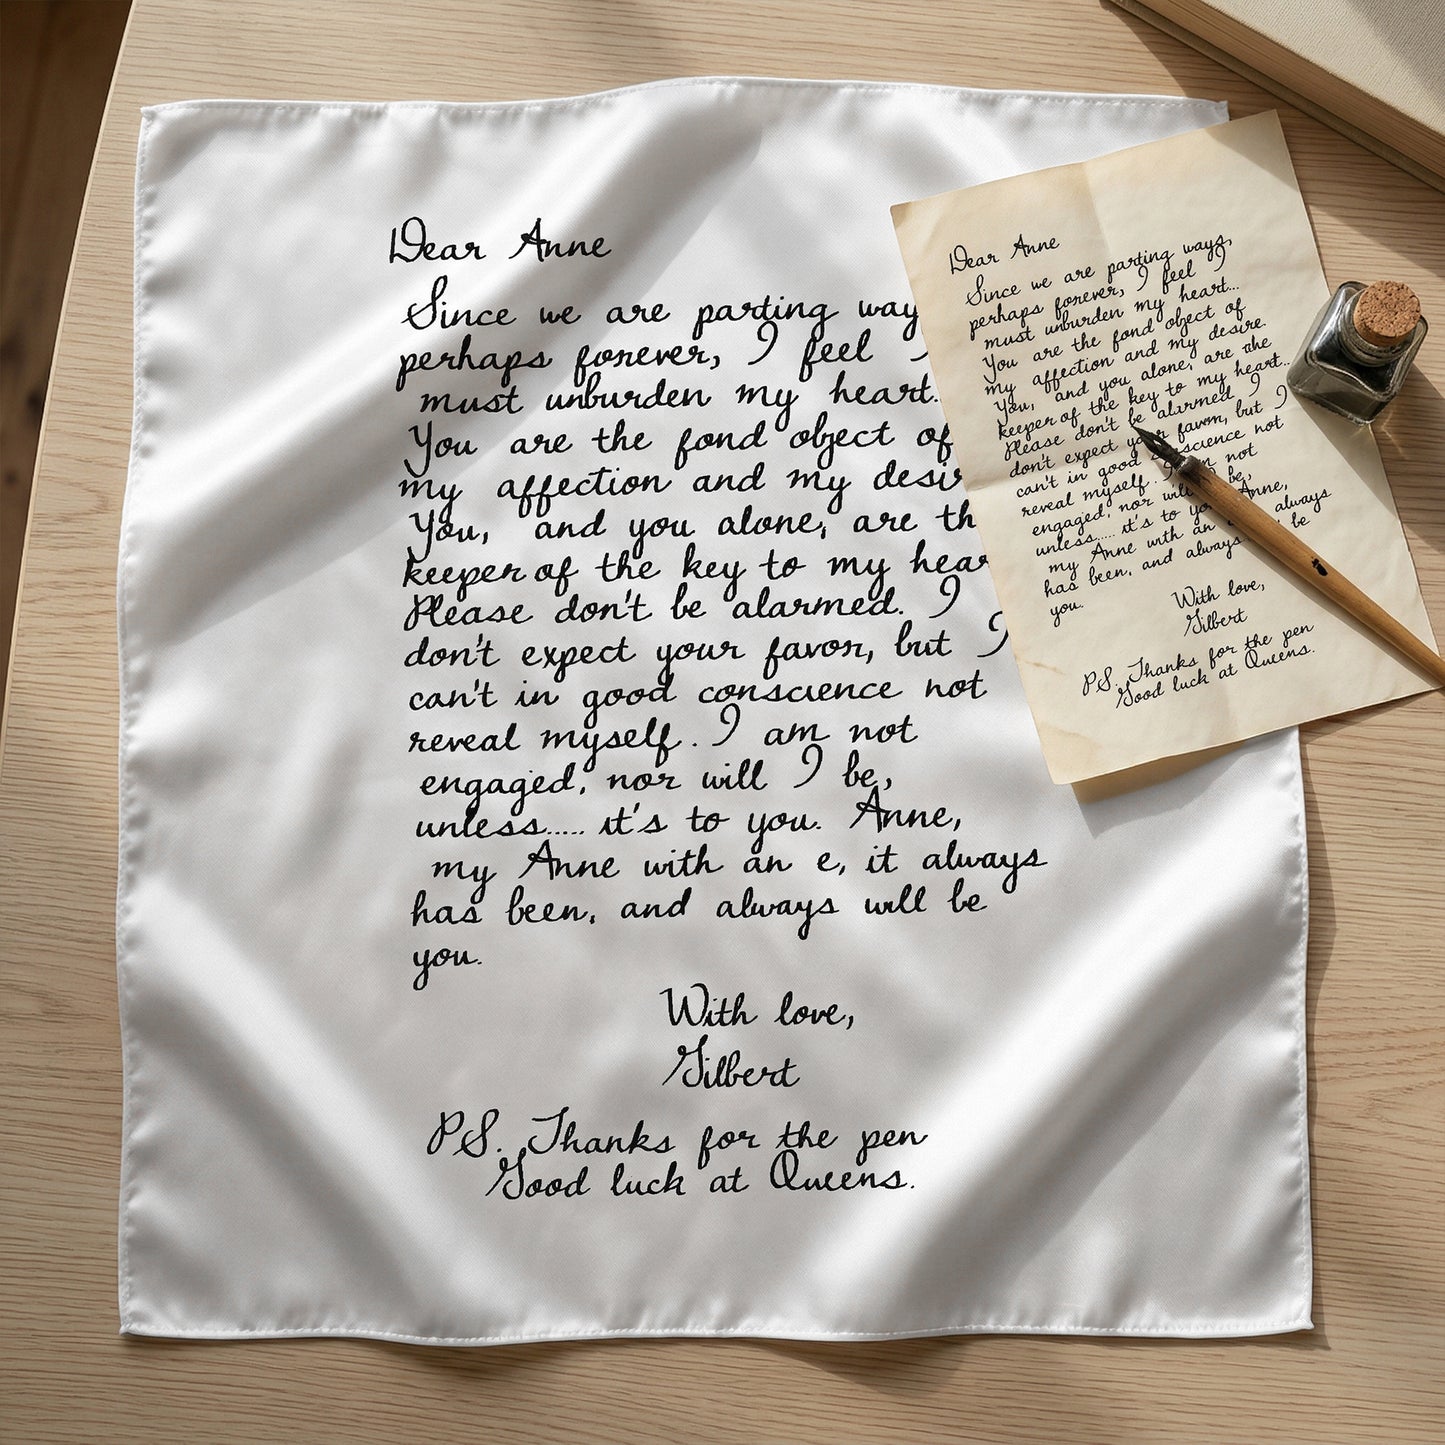 Dear Anne
Since we are parting way
perhaps forever, I feel I
must unburden my heart.
You are the fond object of
my affection and my desir
You, and you alone, are th
keeper of the key to my hear
Please don't be alarmed. I
don't expect your favor, but I
can't in good conscience not
reveal myself. I am not
engaged, nor will I be,
unless..... it's to you. Anne,
my Anne with an e, it always
has been, and always will be
you.
With love,
Gilbert
PS. Thanks for the pen
Good luck at Queens.
Dear Anne
Since we are parting ways,
perhaps forever, I feel I
must unburden my heart...
You are the fond object of
my affection and my desire.
You, and you alone, are the
keeper of the key to my heart...
Please don't be alarmed I
don't expect your favor, but I
can't in good conscience not
reveal myself. I am not
engaged, nor will be,
unless..... it's to you Anne,
my Anne with an always
has been, and always be
you.
With love,
Gilbert
PS. Thanks for the pen
Good luck at Queens.